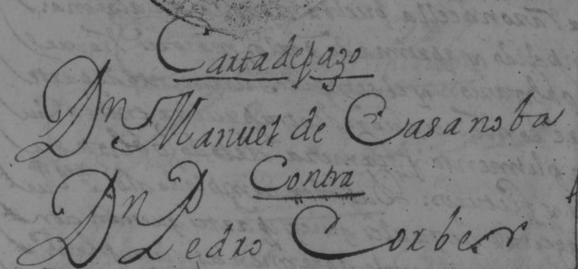 Carta de pago
Dn Manuel de Casanoba
Contra
Dn Pedro Corber